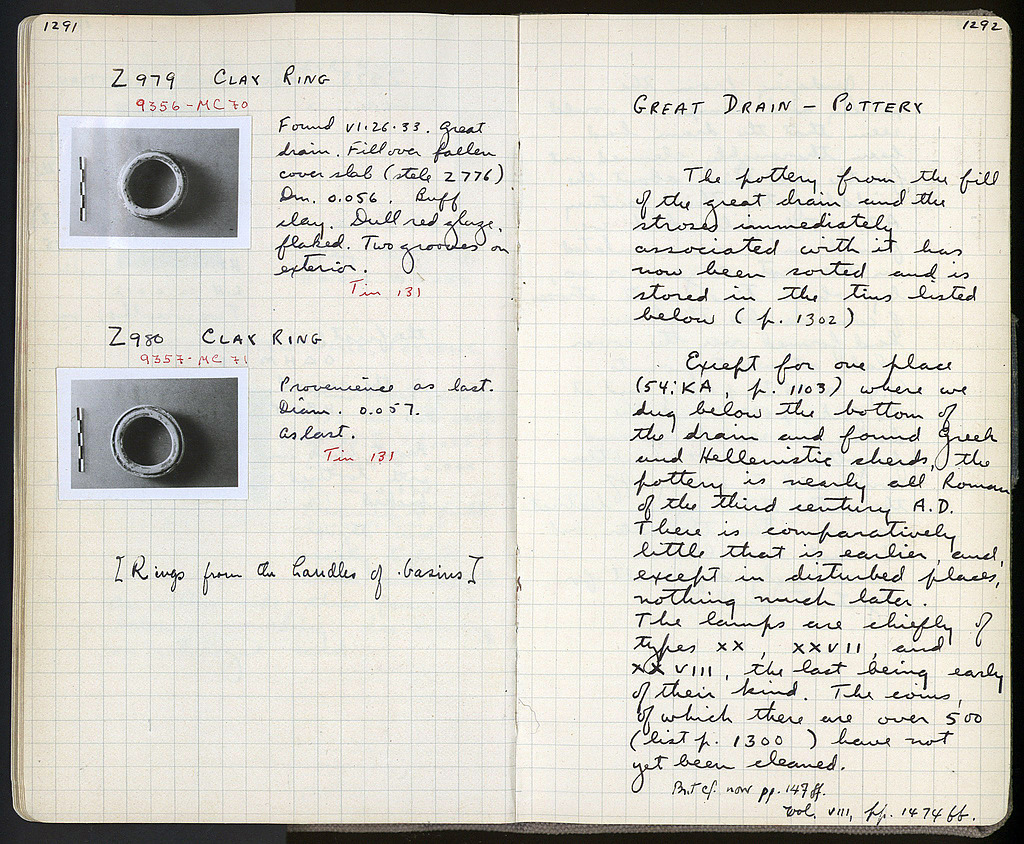 1291
Z 979 CLAY RING
9356 - MC 70
Found VI·26·33. Great
drain. Fill over fallen
cover slab (stele Z 776)
Dm. 0.056. Buff
clay. Dull red glaze,
flaked. Two grooves on
exterior.
Tin 131
Z 980 CLAY RING
9357 - MC 71
Provenience as last.
Diam. 0.057.
As last.
Tin 131
[Rings from the handles of basins]
1292
GREAT DRAIN – POTTERY
The pottery from the fill
of the great drain and the
stroses immediately
associated with it has
now been sorted and is
stored in the tins listed
below (p. 1302)
Except for one place
(54:KA, p. 1103) where we
dug below the bottom of
the drain and found Greek
and Hellenistic sherds, the
pottery is nearly all Roman
of the third century A.D.
There is comparatively
little that is earlier, and,
except in disturbed places,
nothing much later.
The lamps are chiefly of
types XX, XXVII, and
XXVIII, the last being early
of their kind. The coins,
of which there are over 500
(list p. 1300 ) have not
yet been cleaned.
But cf. now pp.
vol. VIII, pp. 1474 ff.